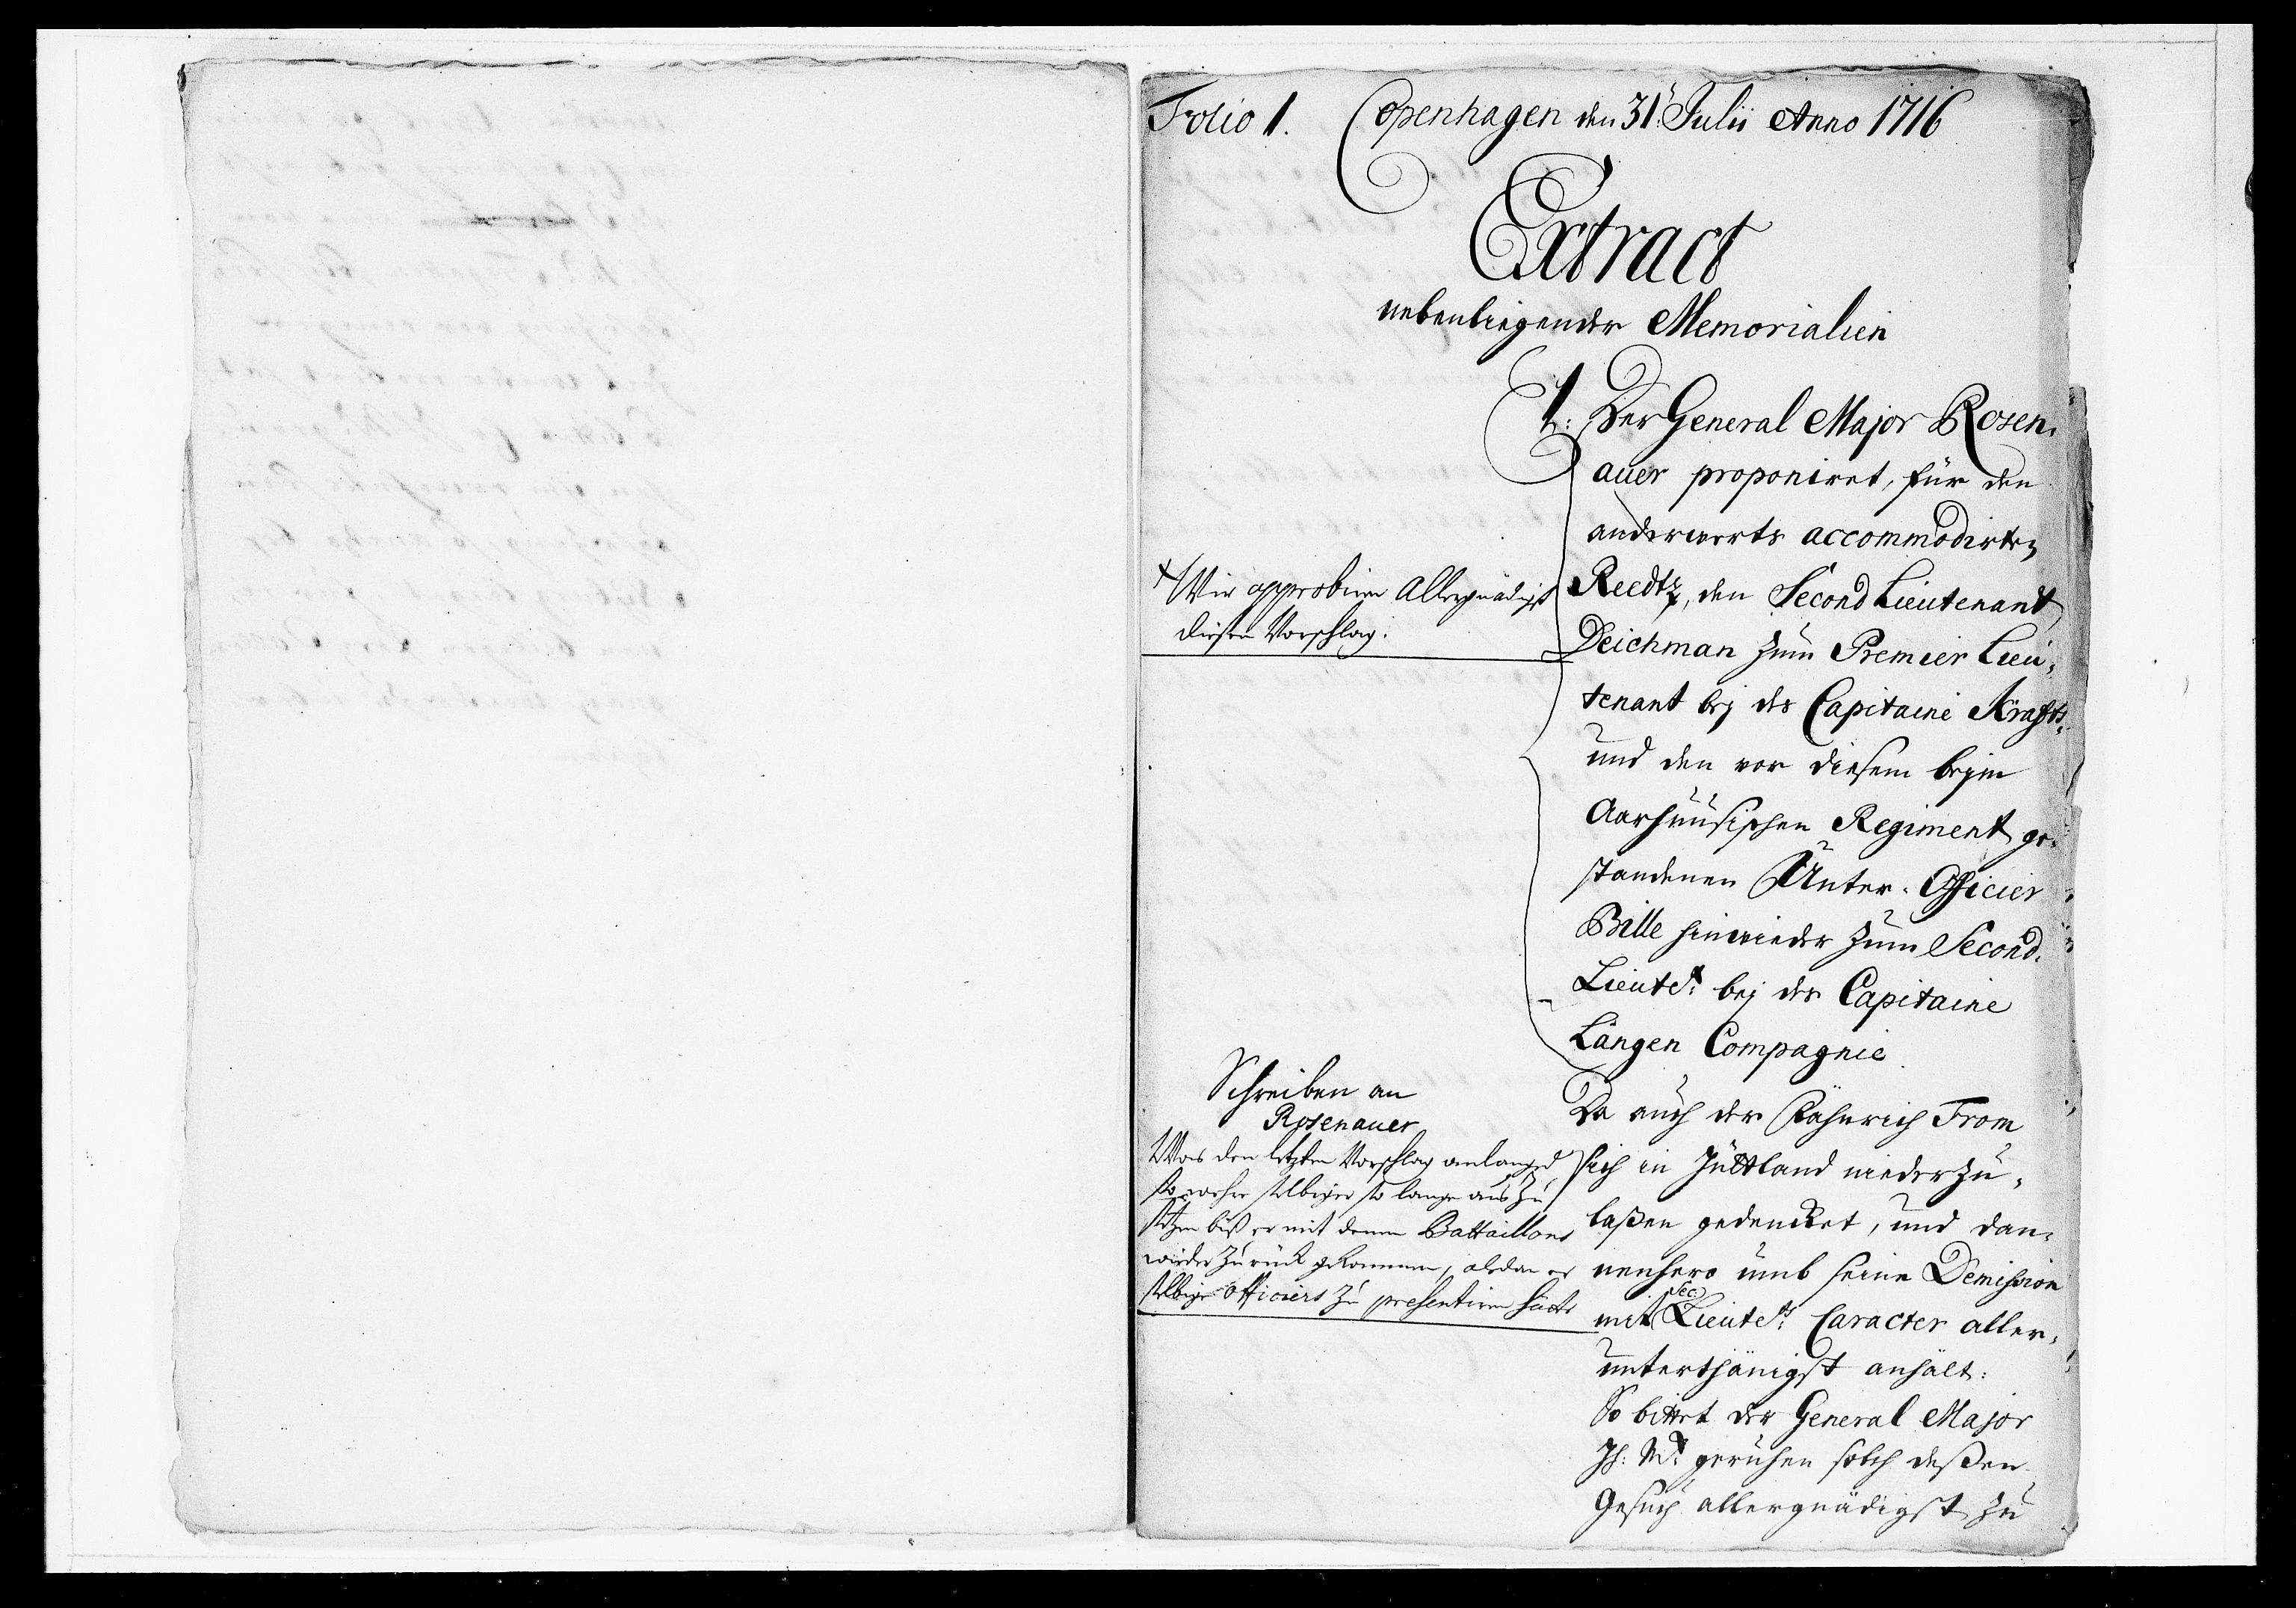 Folio 1. Copenhagen den 31t. Julii Anno 1716
Extract
nebenliegender Memorialien
1: Der General Major Rosen,
auer proponiret, für den
anderwerts accommodirten
Reedtz, den Second Lieutenant
Deichman zum Premier Lieu,
tenant bey des Capitaine Kraffts,
und den vor diesem beym
Aarhuusischen Regiment ge,
standenen Unter-Officier
Bille hinwieder zum Second,
Lieutet: bey des Capitaine
Langen Compagnie.
Da auch der Fähnrich From
sich in Jüttland niederzu,
laßen gedencket, und dan,
nenhero umb seine Demission
mit Sec: Lieutets: Caracter aller,
unterthänigst anhält:
So bittet der General Major
Ih: Mt: geruhen solch deßen
Gesuch allergnädigst zu
Wir approbiren Allergnädigst
diesen Vorschlag.
Schreiben an
Rosenauer
Was den letzten Vorschlag anlanged
so wehre selbiger so lange aus zu
setzen biß er mit denen Battaillons
wieder zurück gekommen, alsdan er
selbige Officiers zu presentiren hätte